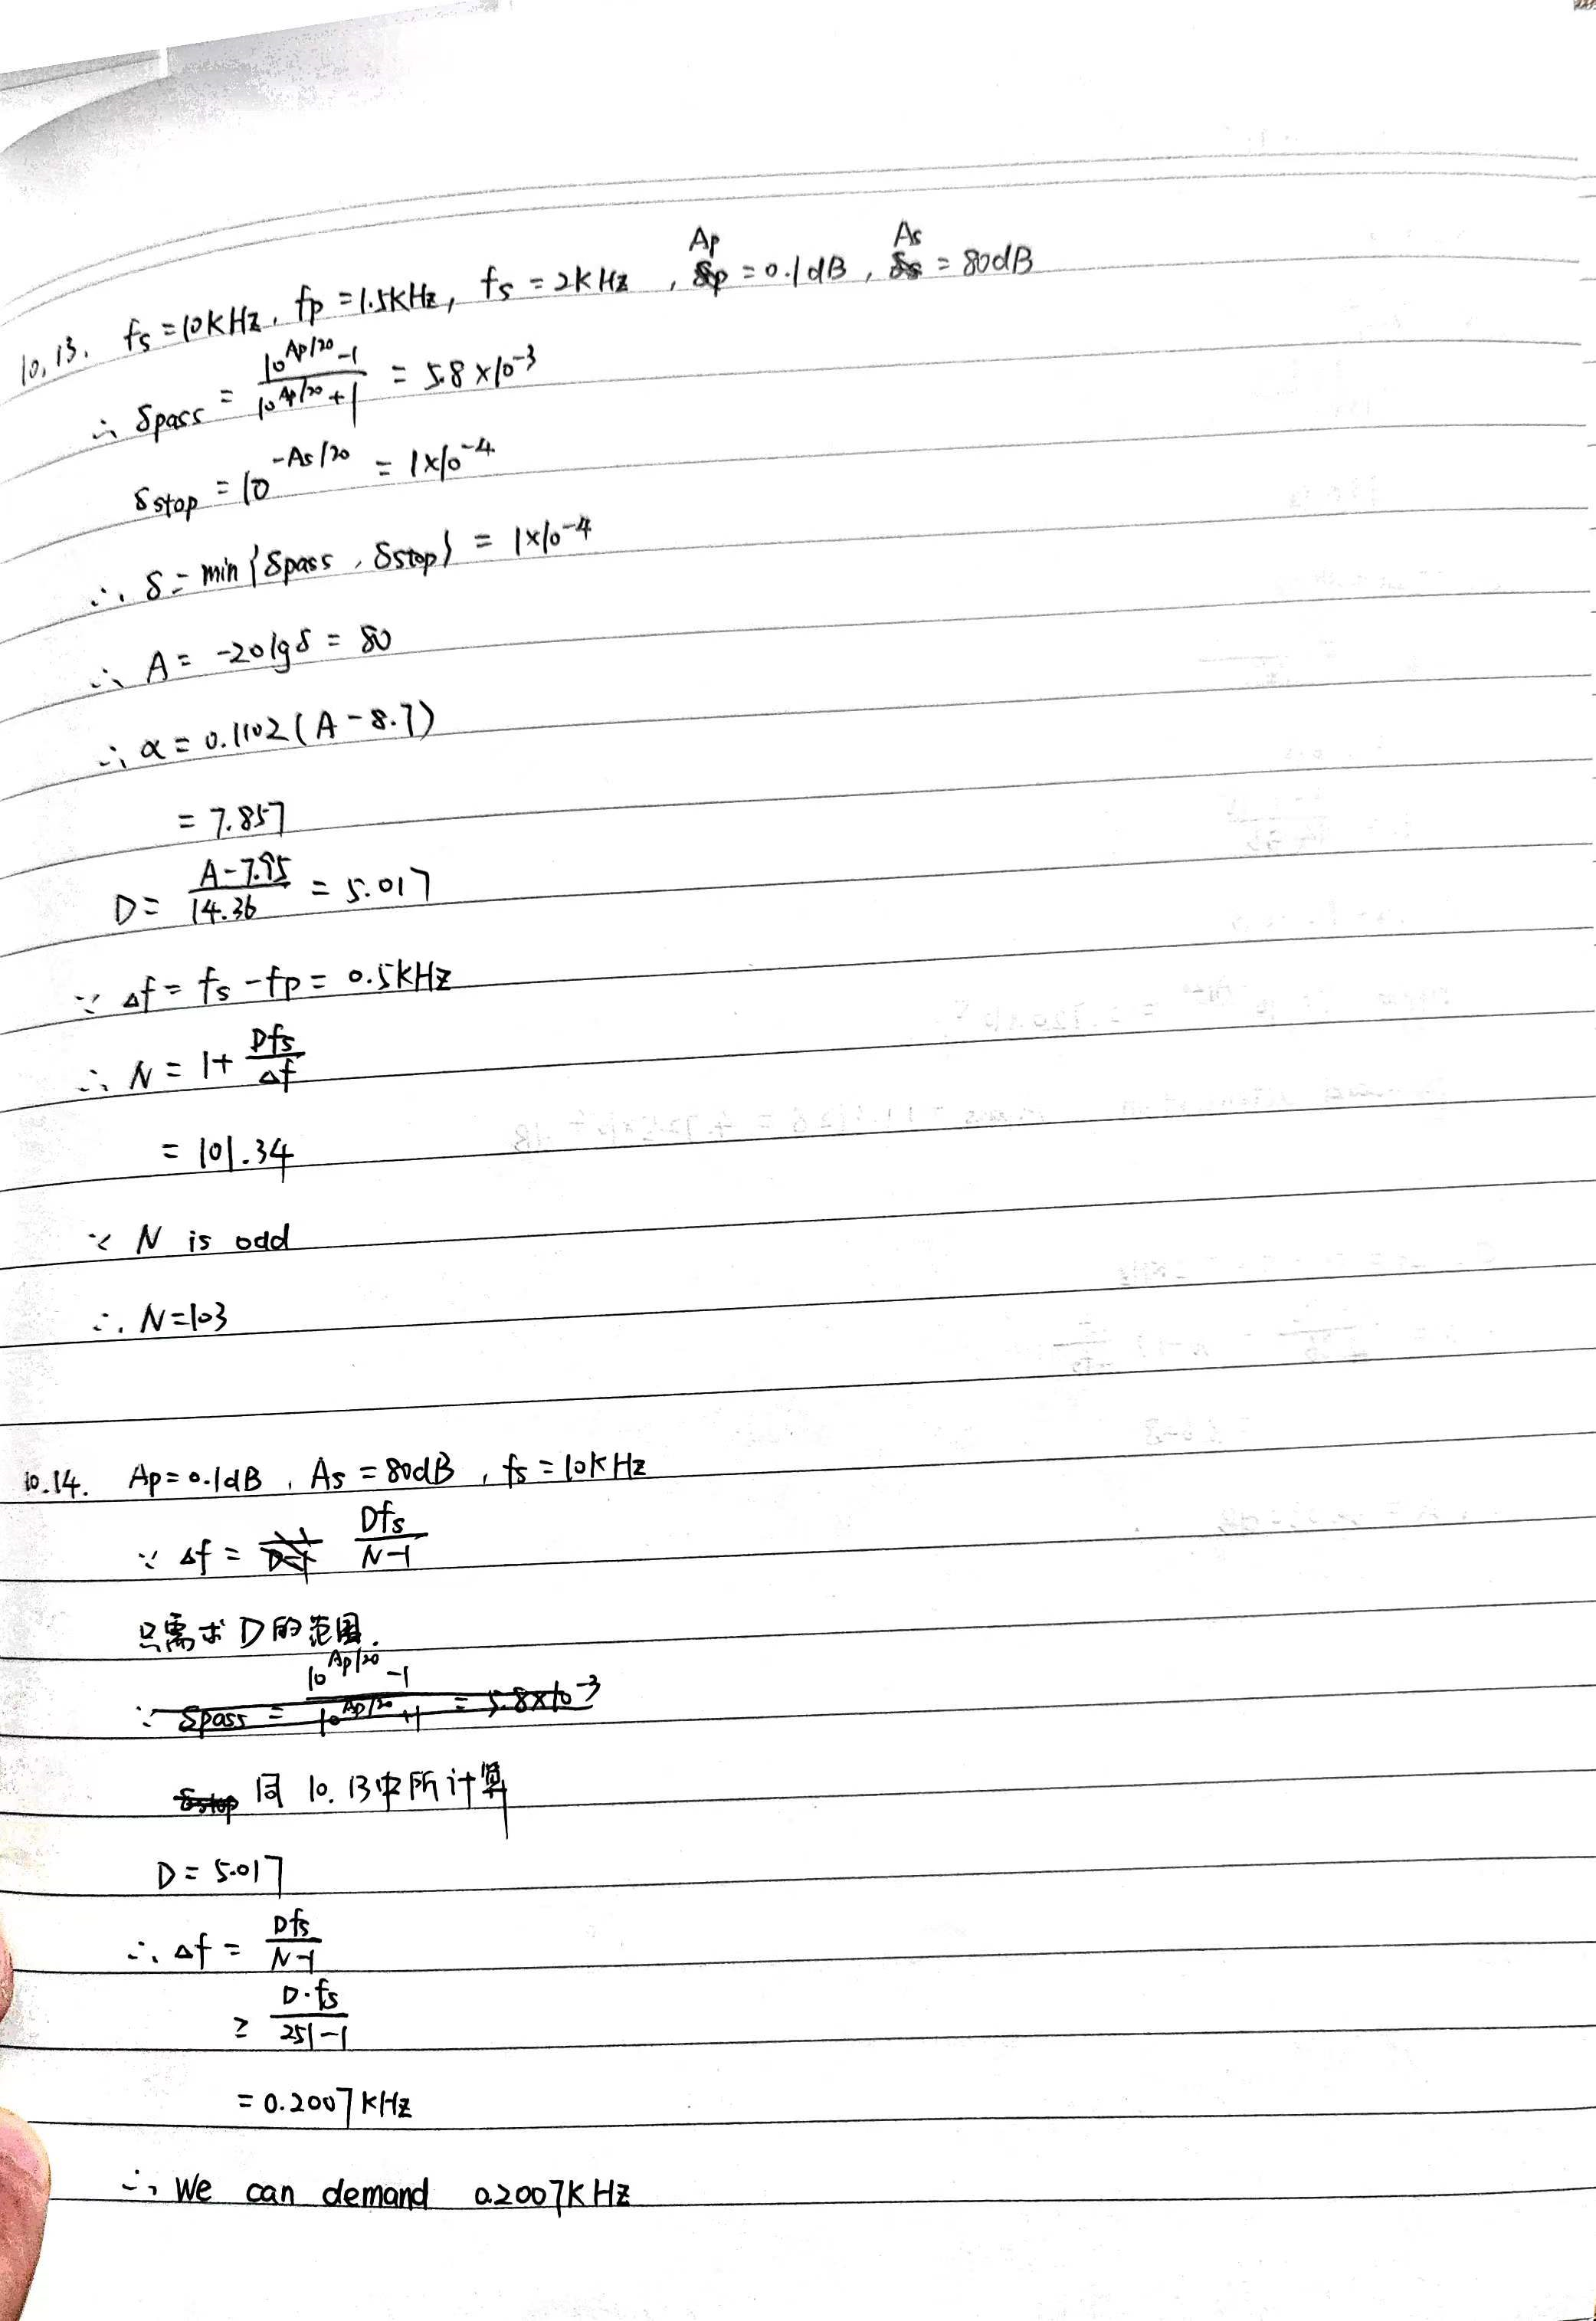 10.13. fs=10KHz, fp=1.5KHz, fs=2KHz, Ap=0.1dB, As=80dB
∴ δpass = (10^(Ap/20)-1)/(10^(Ap/20)+1) = 5.8×10^-3
δstop = 10^(-As/20) = 1×10^-4
∴ δ= min{δpass, δstop} = 1×10^-4
∴ A= -20lgδ = 80
∴ α=0.1102(A-8.7)
= 7.857
D= (A-7.95)/14.36 = 5.017
∵ Δf= fs-fp= 0.5KHz
∴ N = 1+ Dfs/Δf
= 101.34
∵ N is odd
∴ N=103
10.14. Ap=0.1dB, As=80dB, fs=10KHz
∵ Δf = Dfs/(N-1)
只需求D的范围.
∵ δpass = (10^(Ap/20)-1)/(10^(Ap/20)+1) = 5.8×10^-3
δstop 同 10.13中所计算
D= 5.017
∴ Δf = Dfs/(N-1)
≥ D·fs/(251-1)
= 0.2007KHz
∴ We can demand 0.2007KHz